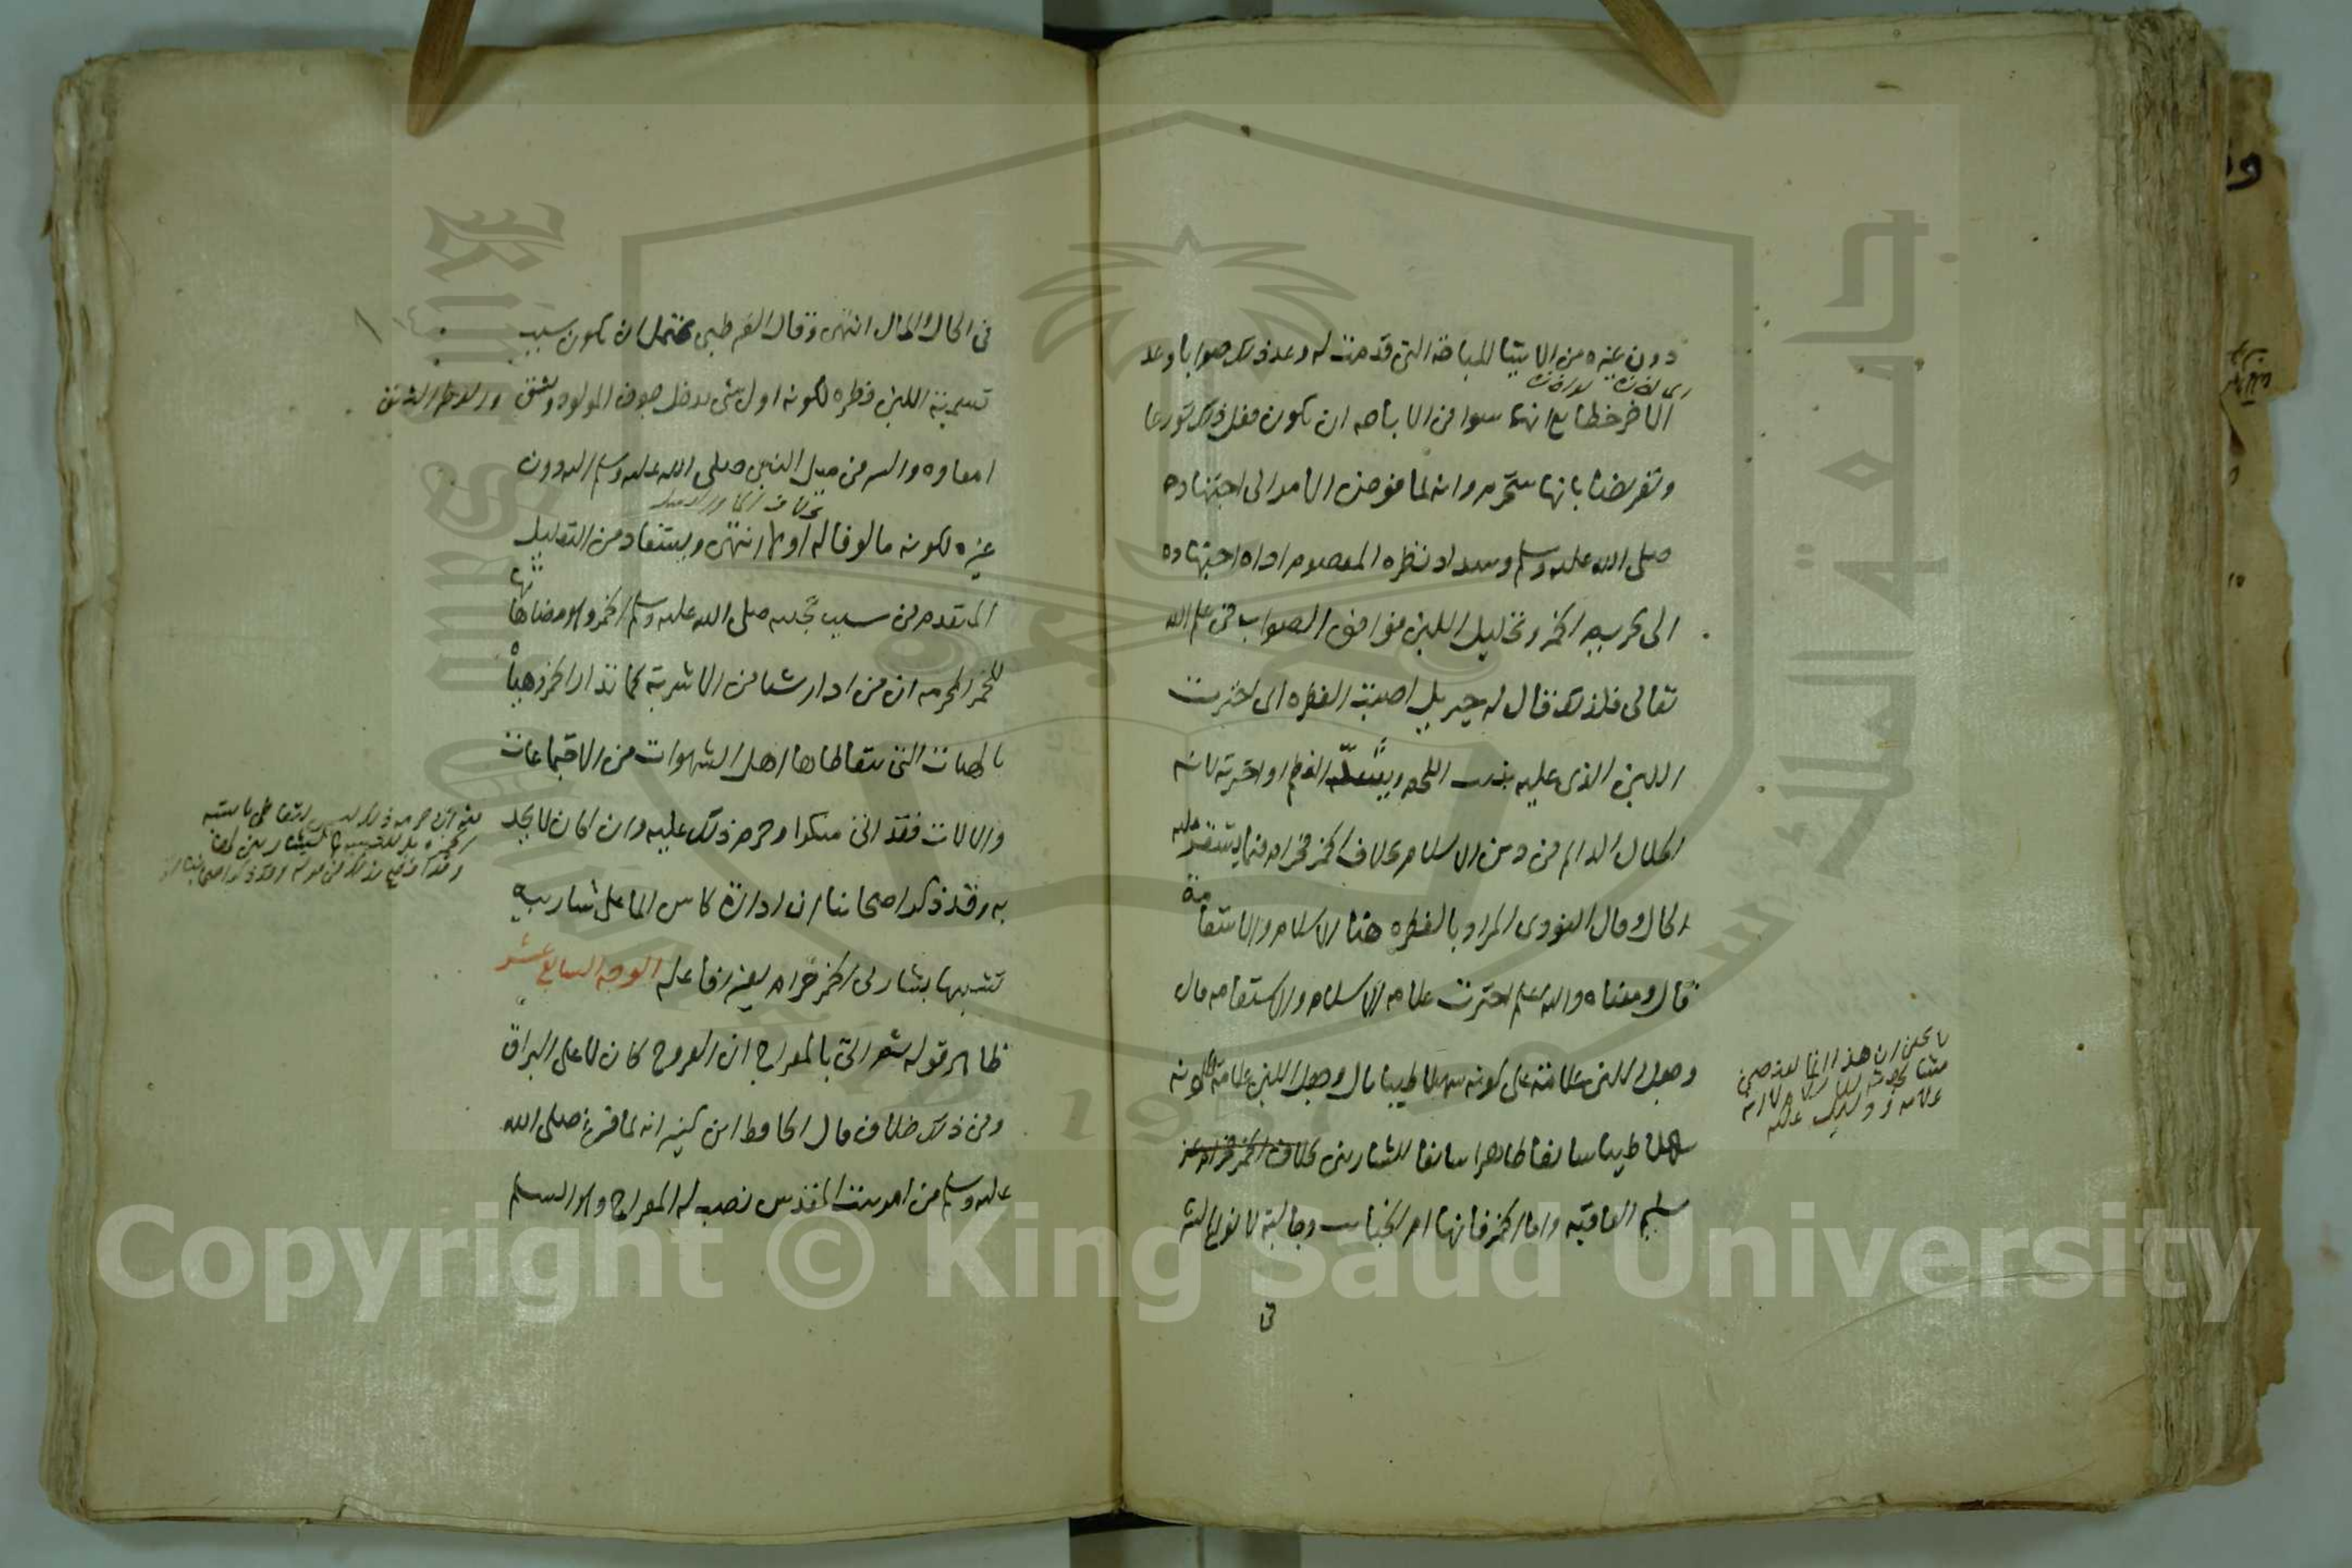 دون غيره من الاشيا المباحة التي قدمت له وعد ذلك صوابا وعد
الاخر خطا مع انهما سوا في الاباحه ان يكون فعل ذلك تورعا
وتعريضا بانها ستحرم وانه لما فوض الامر الى اجتهاده
صلى الله عليه وسلم وسداد نظره المعصوم اداه اجتهاده
الى تحريم الخمر وتحليل اللبن فوافق الصواب في علم الله
تعالى فلذلك قال له جبريل اصبت الفطره اى اخترت
اللبن الذى عليه ينبت اللحم وينشز العظم او اخترته لانه
الحلال الدايم في دين الاسلام بخلاف الخمر فحرام فيما يستقر عليه
الحال وقال النووى المراد بالفطره هنا الاسلام والاستقامة
قال ومعناه والله اعلم اخترت علامه الاسلام والاستقامه قال
وجعل اللبن علامة على كونه سهلا طيبا قال وجعل اللبن علامة لكونه
سهلا طيبا سايغا طاهرا سايغا للشاربين بخلاف الخمر فحرام
سليم العاقبه واما الخمر فانها ام الخبايث وجالبة لانواع الشر
لا يخفى ان هذا انما
علامه
في
في الحال والمال انتهى وقال القرطبى يحتمل ان يكون سبب
تسمية اللبن فطره لكونه اول شى يدخل جوف المولود ويشق
امعاوه والسر في ميل النبى صلى الله عليه وسلم اليه دون
غيره لكونه مالوفا له اولا انتهى ويستفاد من التعليل
المتقدم في سبب تجنبه صلى الله عليه وسلم الخمر وهو مضاهاتها
للخمر المحرمه ان من ادار شيا من الاشربة كما تدار الخمر وهيأه
بالهيات التى يتعاطاها اهل الشهوات من الاجتماعات
والالات فقد اتى منكرا وحرم ذلك عليه وان كان لا يحد
به وقد ذكر اصحابنا ان ادارة كاس الما على شاربيه
تشبيها بشاربى الخمر حرام يعزر فاعله الوجه السابع عشر
ظاهر قوله ثم اتى بالمعراج ان العروج كان لا على البراق
وفي ذلك خلاف قال الحافظ ابن كثير انه لما فرغ صلى الله
عليه وسلم من امر بيت المقدس نصب له المعراج وهو السلم
Copyright © King Saud University